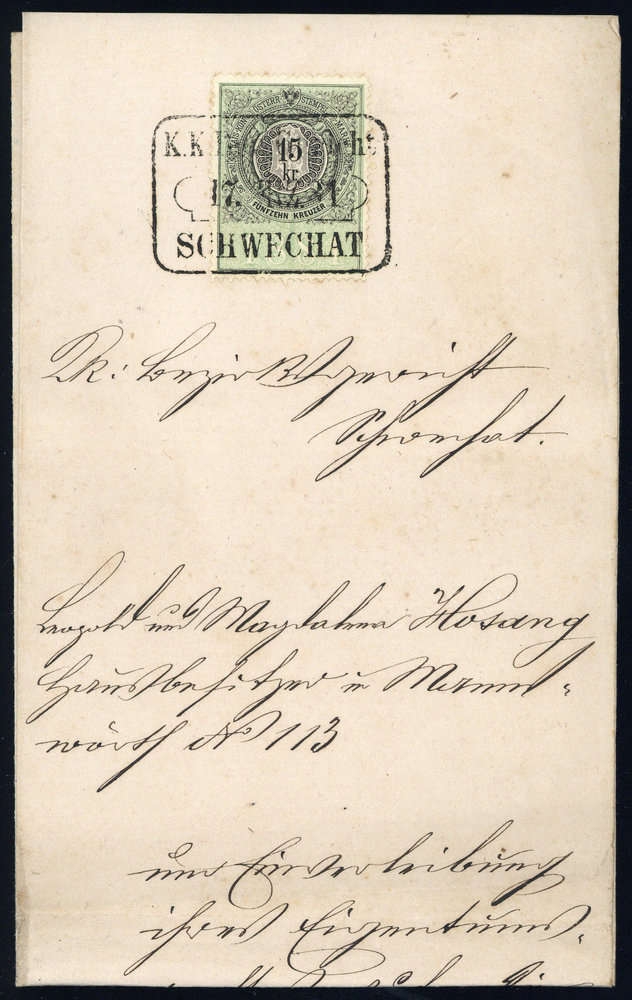 ÖSTERR. STEMPEL MARKE
15
kr.
FÜNFZEHN KREUZER
K.K. cht
17. 1
SCHWECHAT
K: Bezirksgericht
Schwechat.
Leopold und Magdalena Hosang
Hausbesitzer in Mann-
wörth No 113
um Einverleibung
ihres Eigentums-